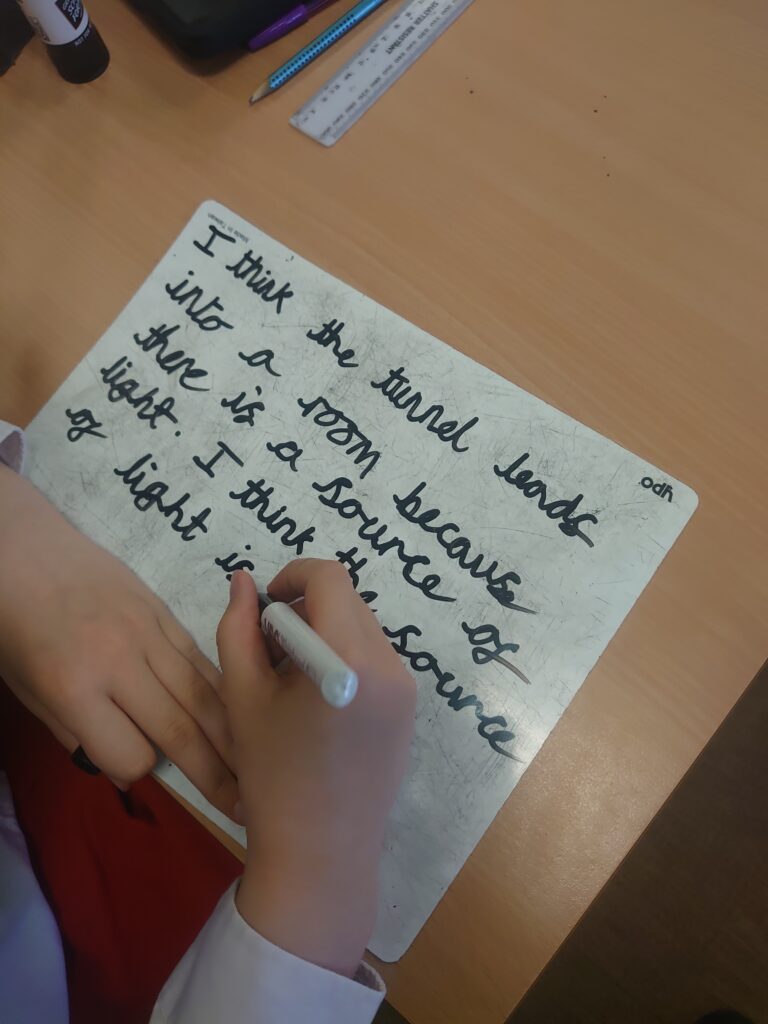 I think the tunnel leads
into a room because
there is a source of
light. I think the source
of light is
Made in Taiwan
SHATTER RESISTANT